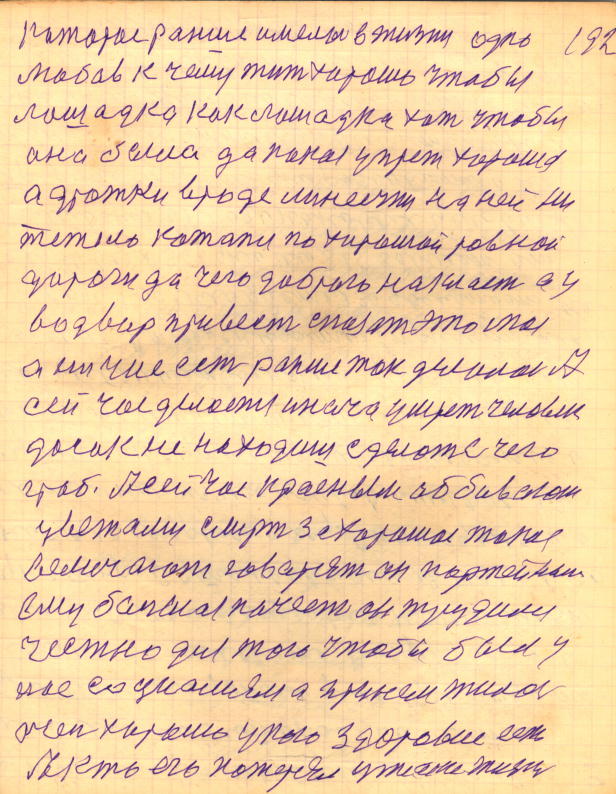 которое ранше имелы в жизни одно 192
любов к чему тит хорошо чтобы
лошадка как лошадка хот чтобы
она была да покое упреж хорошая
а дрожки вроде линеечки на ней ни
тежело котали по хорошой ровной
дороги да чего доброго накласт а у
водвор привест сказат это мое
а ни чие сет ранше так делалос А
сей час делоетс иначе умрет человек
досок не находиш сделоже с чего
гроб. А сей час красным оббивском
цветами смирт за хорошое такое
величают говарят он партейный
ему болшая почест он трудилс
честно дл того чтобы был у
нас социализм а при нем жило
чеп хорошо у кого здоровие ест
А кто его потерял уже не жизн